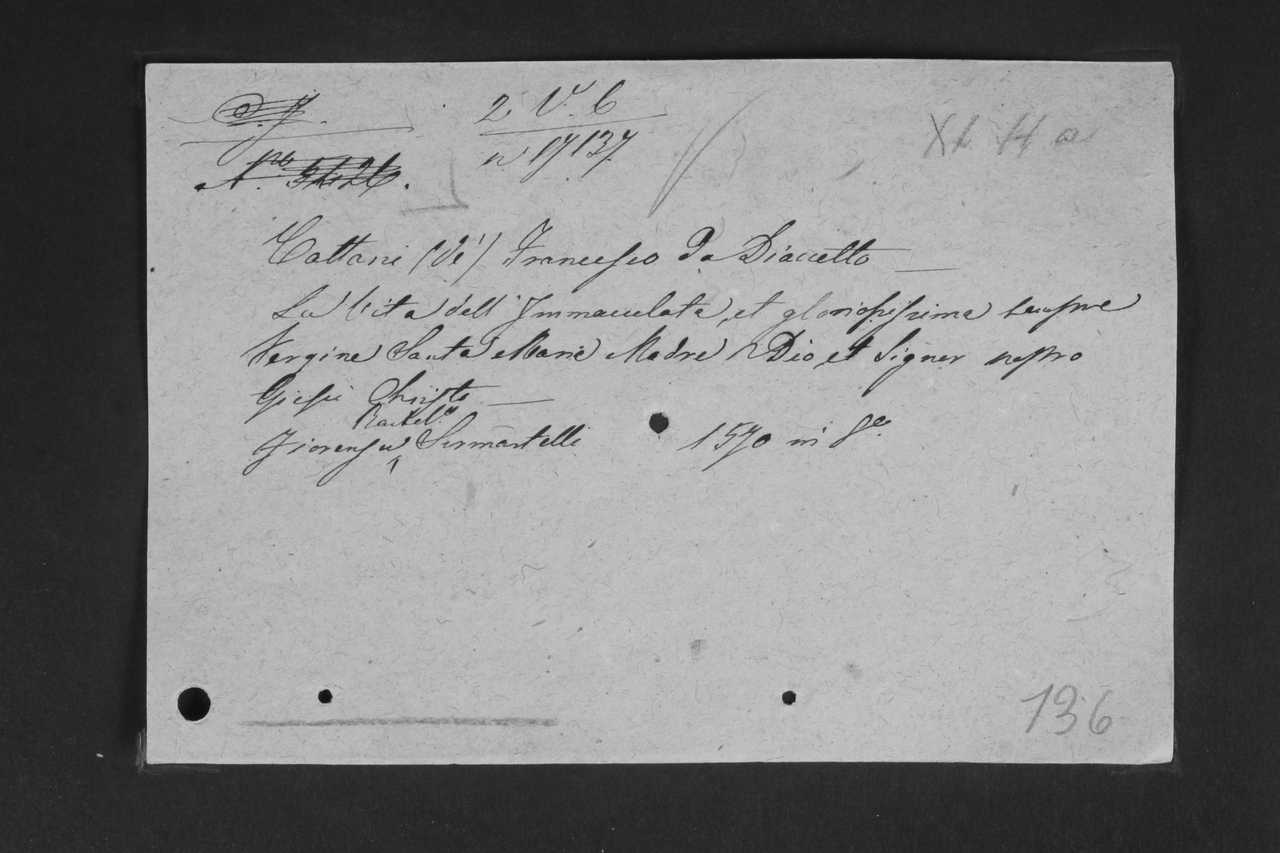 2 V. 6
n 17137.
XL H a
Cattani (de') Francesco da Diaccetto —
La Vita dell' Immaculata, et gloriosissima sempre
Vergine Santa Maria Madre Dio, et Signor nostro
Giesu Christo —
Fiorenza, Bartol.º Sermartelli 1570 in 8º
136